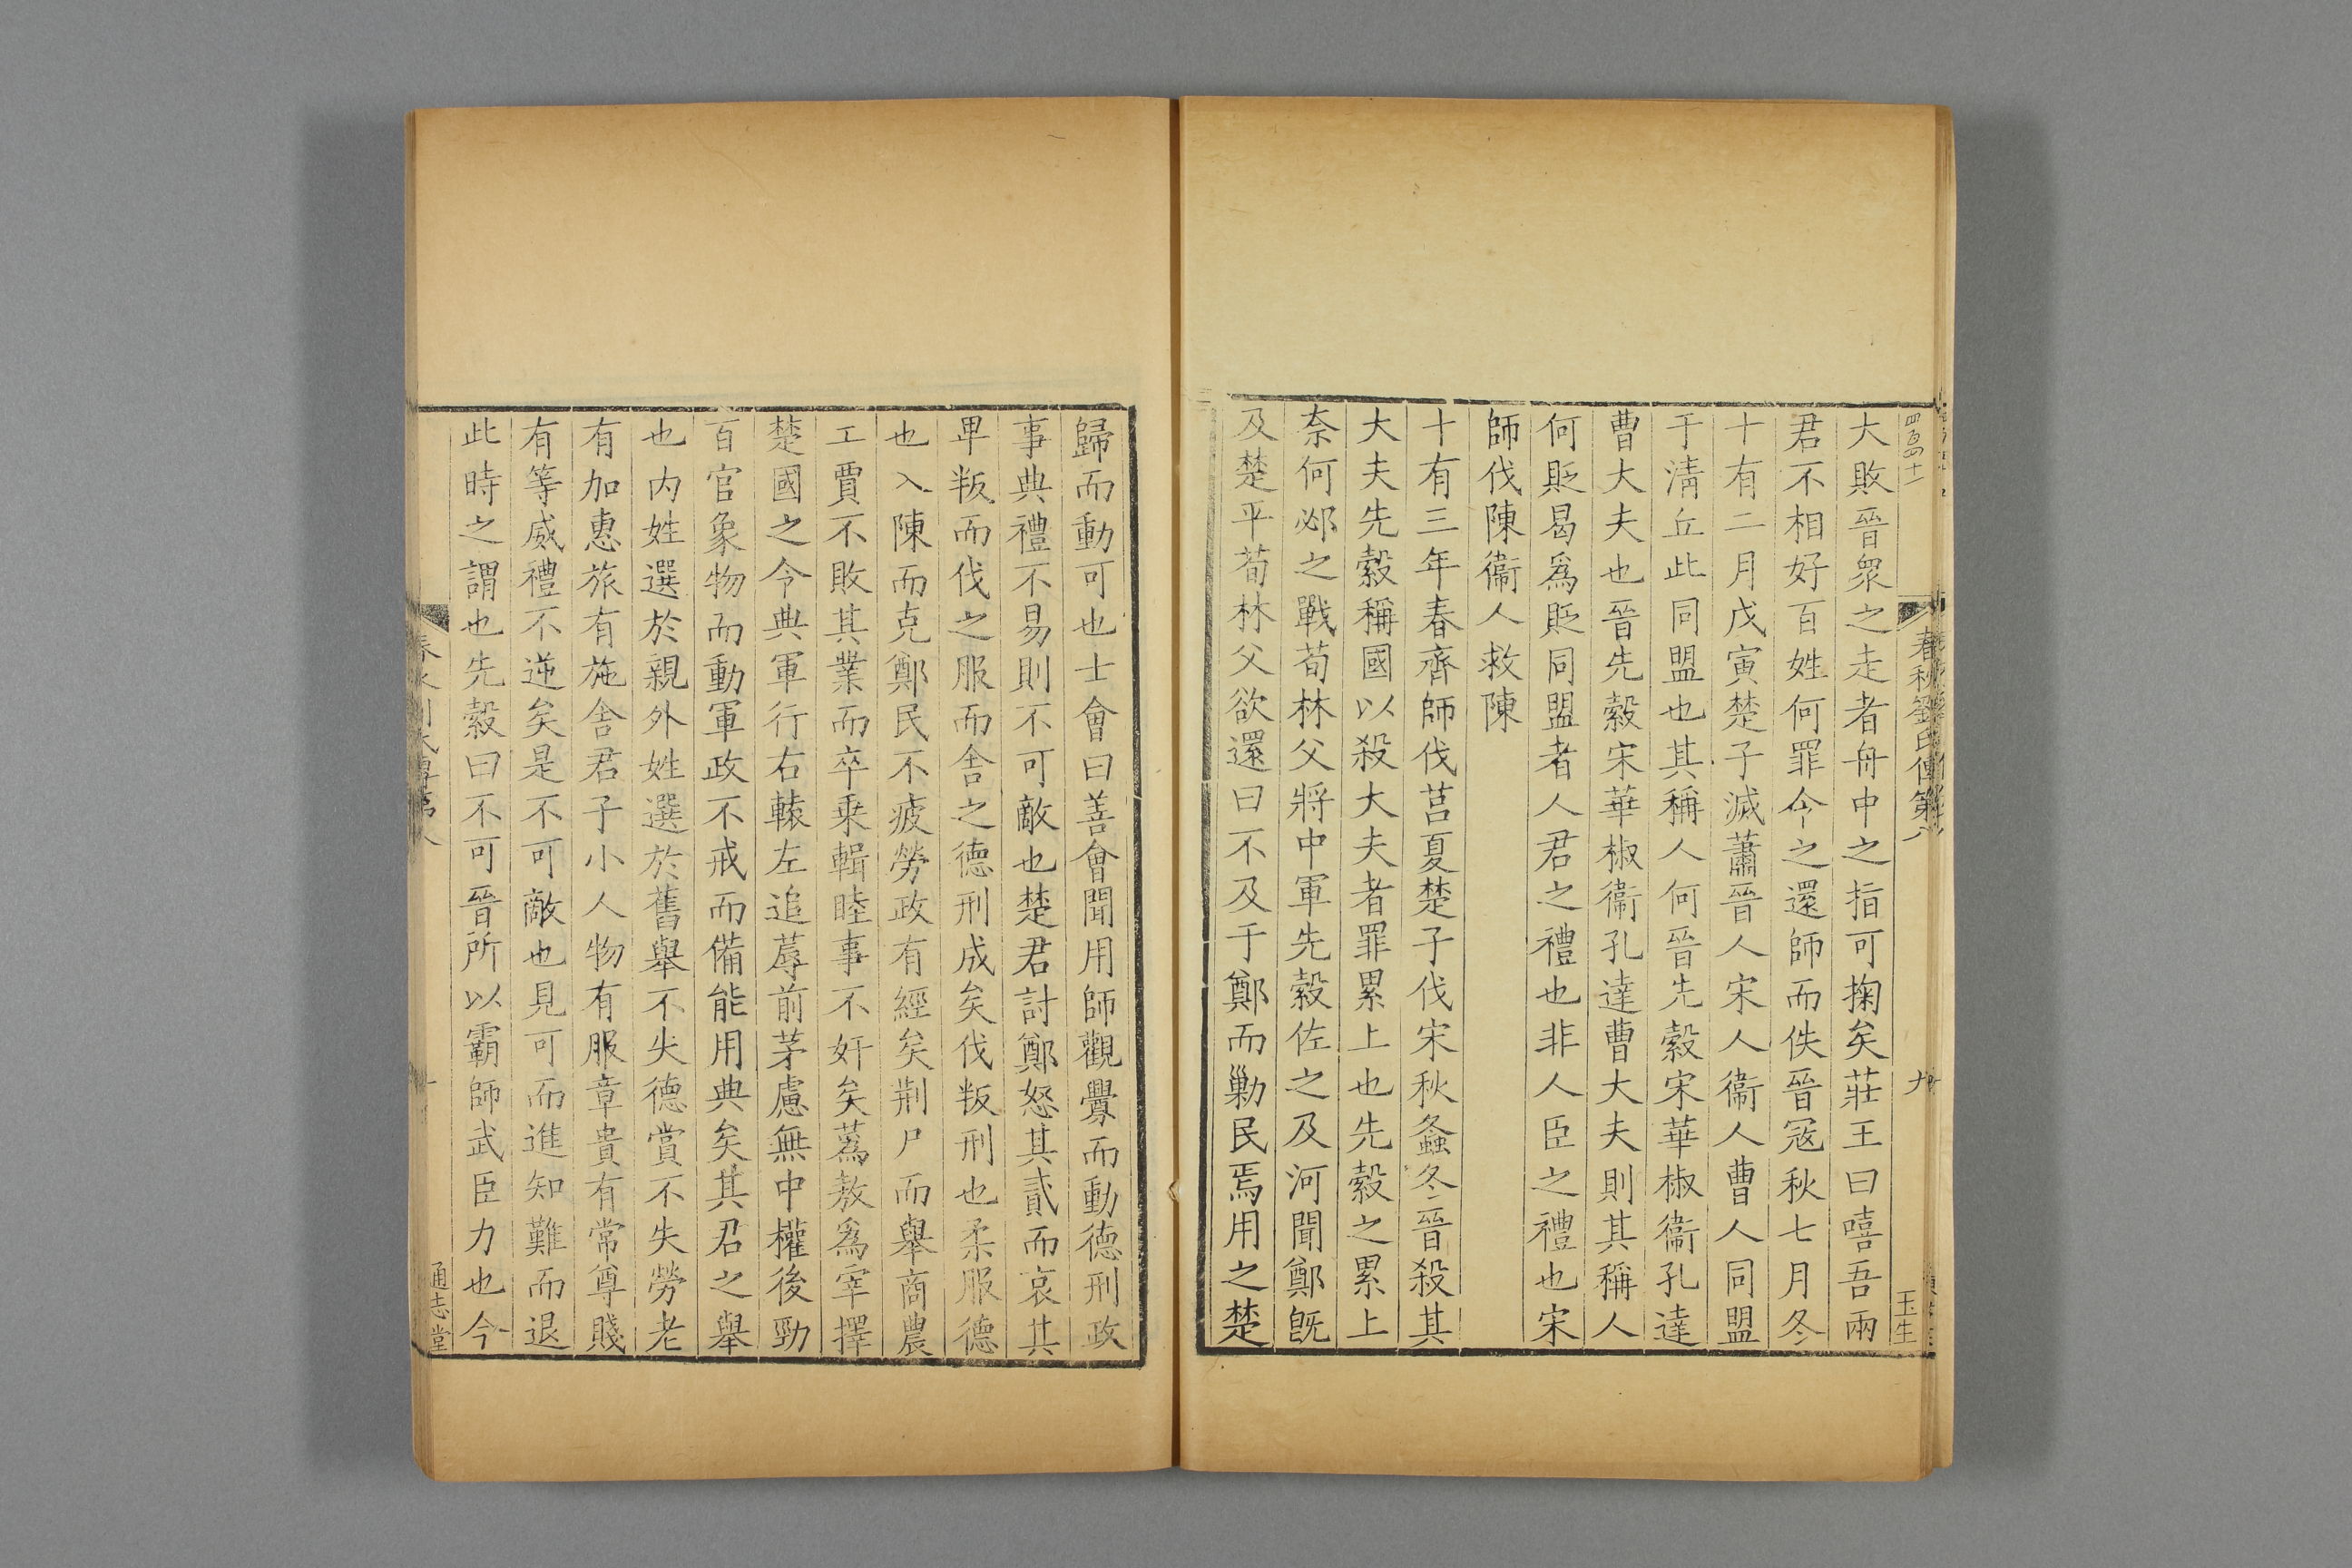 春秋劉氏傳第八
九
玉生
大敗晉衆之走者舟中之指可掬矣莊王曰嘻吾兩
君不相好百姓何罪令之還師而佚晉寇秋七月冬
十有二月戊寅楚子滅蕭晉人宋人衞人曹人同盟
于淸丘此同盟也其稱人何晉先縠宋華椒衞孔達
曹大夫也晉先縠宋華椒衞孔達曹大夫則其稱人
何貶曷爲貶同盟者人君之禮也非人臣之禮也宋
師伐陳衞人救陳
十有三年春齊師伐莒夏楚子伐宋秋螽冬晉殺其
大夫先縠稱國以殺大夫者罪累上也先縠之累上
奈何邲之戰荀林父將中軍先縠佐之及河聞鄭旣
及楚平荀林父欲還曰不及于鄭而勦民焉用之楚
歸而動可也士會曰善會聞用師觀釁而動德刑政
事典禮不易則不可敵也楚君討鄭怒其貳而哀其
卑叛而伐之服而舍之德刑成矣伐叛刑也柔服德
也入陳而克鄭民不疲勞政有經矣荆尸而舉商農
工賈不敗其業而卒乗輯睦事不奸矣蒍敖爲宰擇
楚國之令典軍行右轅左追蓐前茅慮無中權後勁
百官象物而動軍政不戒而備能用典矣其君之舉
也内姓選於親外姓選於舊舉不失德賞不失勞老
有加惠旅有施舍君子小人物有服章貴有常尊賤
有等威禮不逆矣是不可敵也見可而進知難而退
此時之謂也先縠曰不可晉所以霸師武臣力也今
通志堂